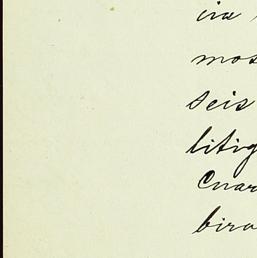 cia
mos
seis
litig
Cuar
bira